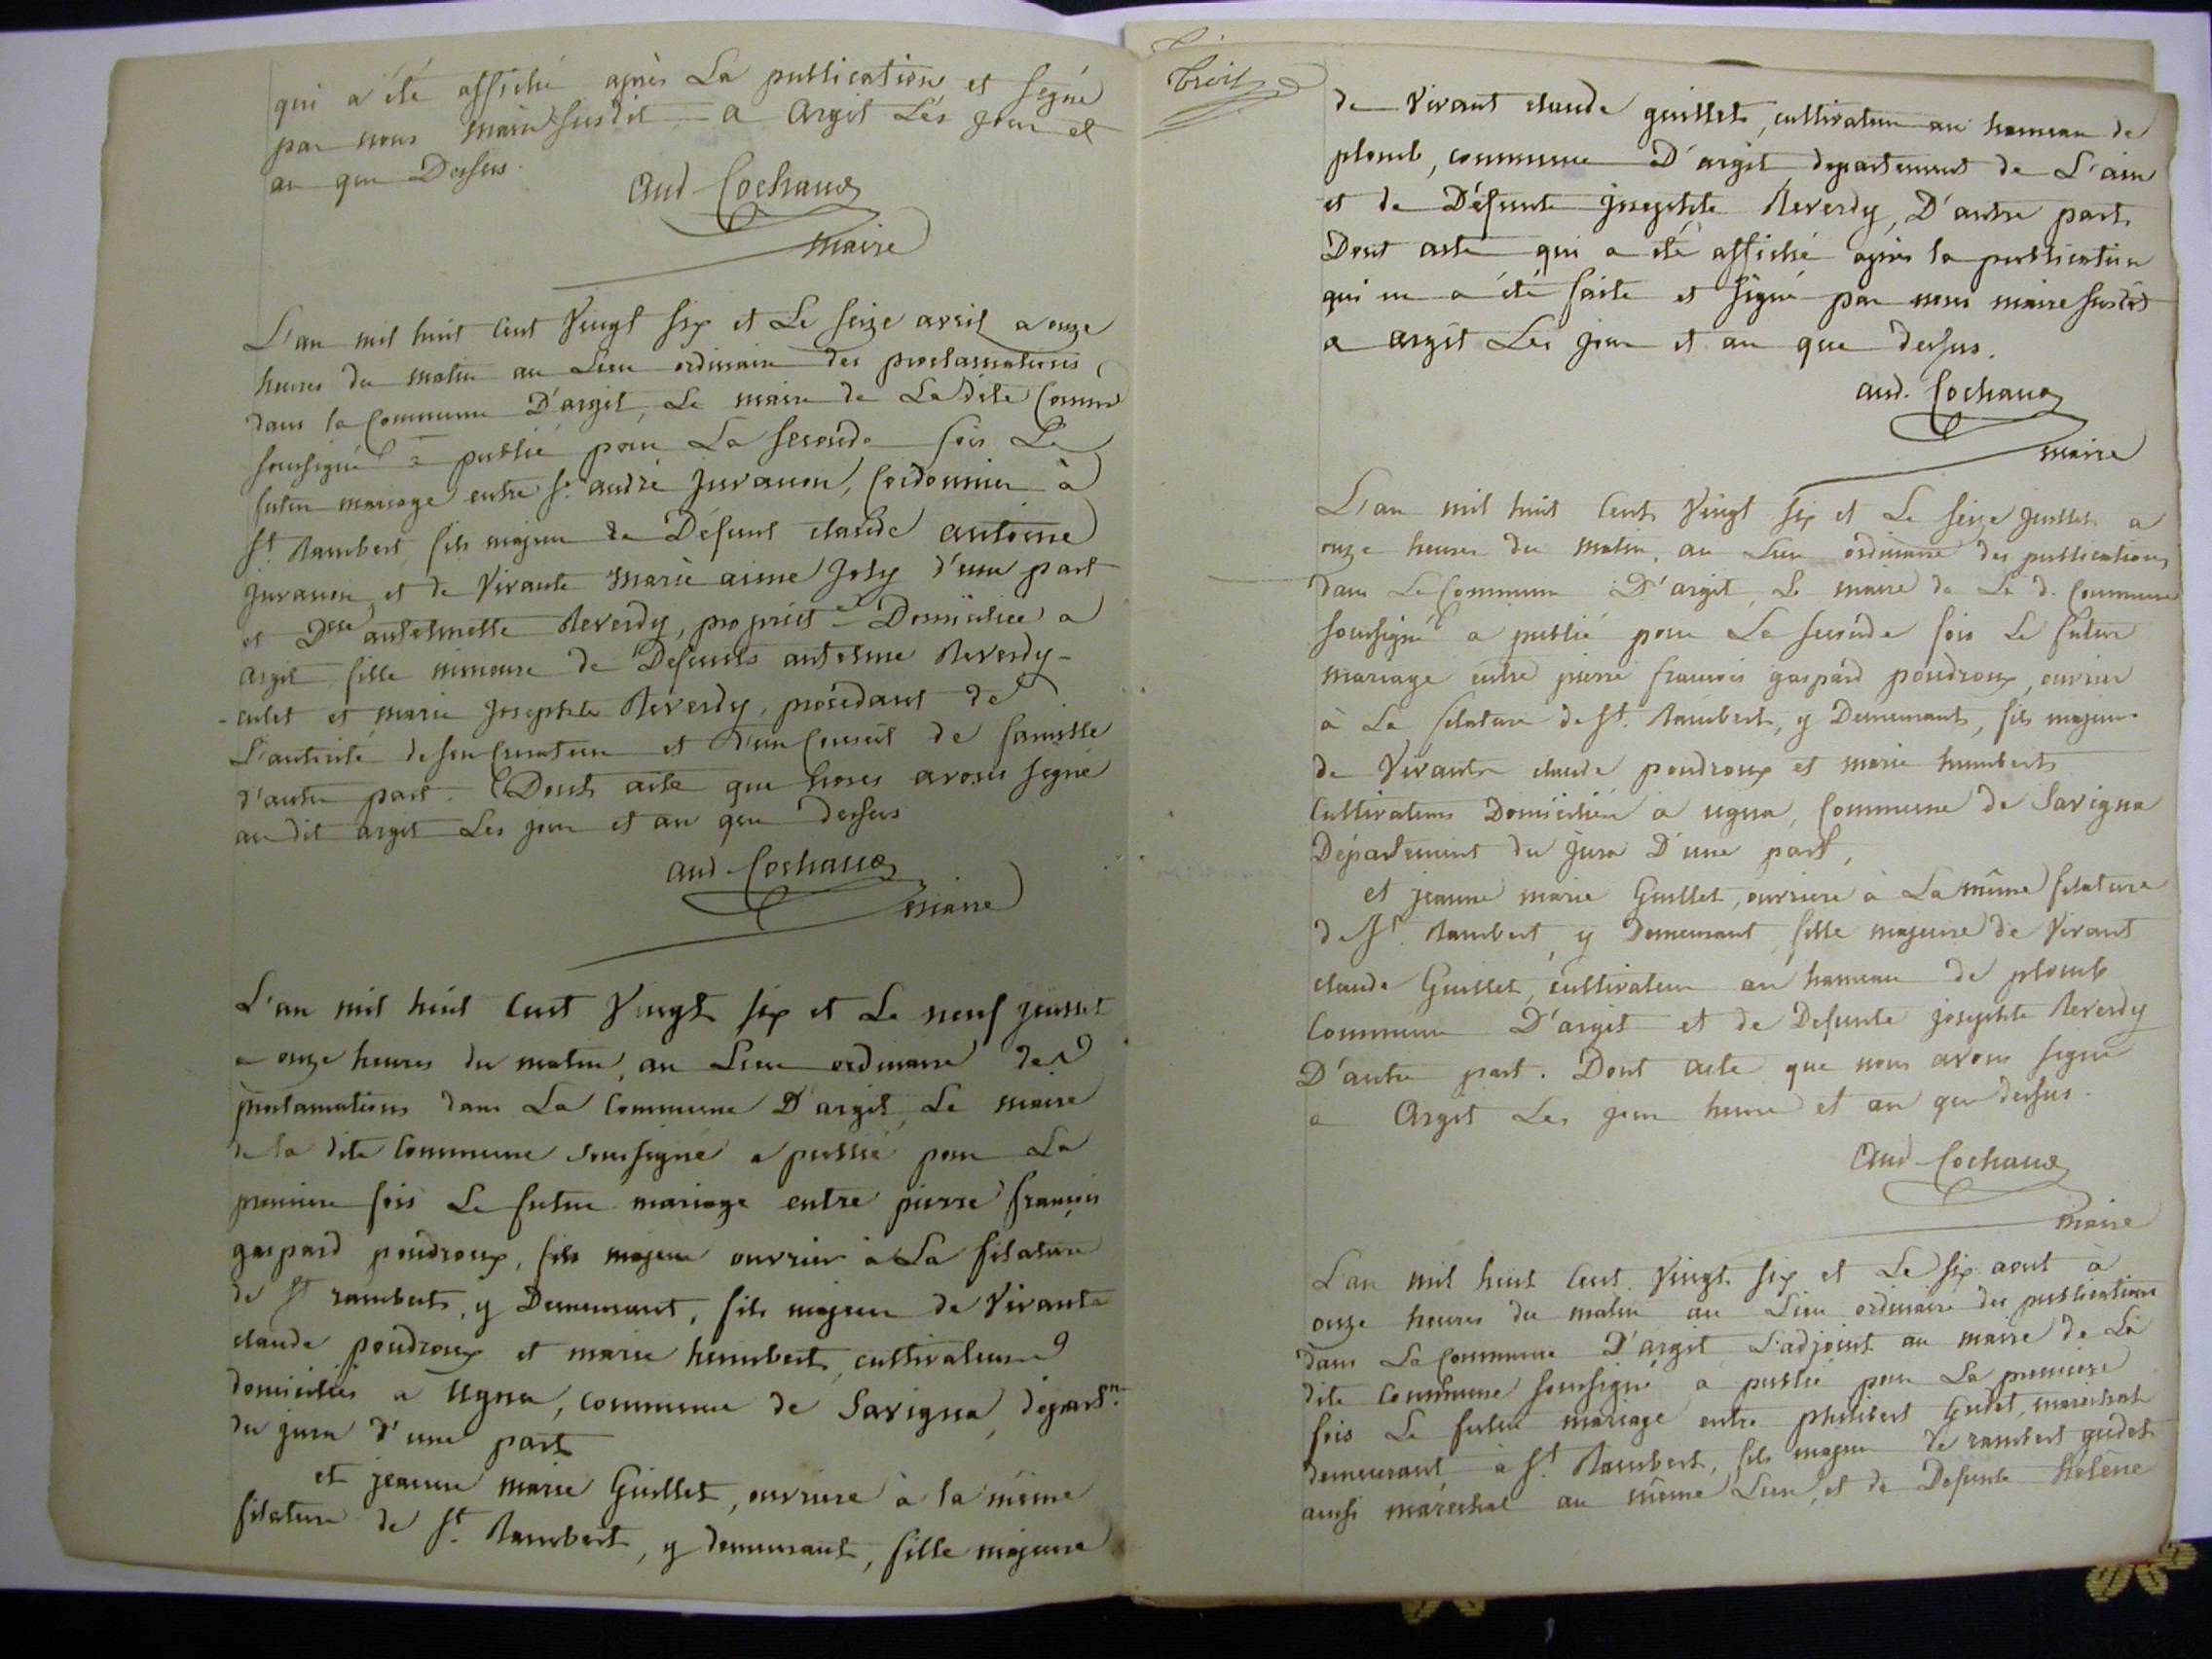 qui a été affiché après La publication et signé
par nous maire susdit a argit Les jour et
an que Dessus.
and Cochaud
maire
L'an mil huit Cent Vingt six et Le seize avril a onze
heures du matin au Lieu ordinaire des proclamations
dans la Commune D'argit, Le maire de La dite Comm
soussigné a publié pour La seconde fois Le
futur mariage entre sr. andré juvanon, Cordonnier à
st Rambert, fils majeur de Défunt claude antoine
juvanon, et de Vivante marie aimé joly d'une part
et Dlle anthelmette Reverdy, propriét re Domiciliée a
argit fille mineure de Defunts anthelme Reverdy-
-culet et marie josephte Reverdy, procédant de
L'autorité de son Curateur et d'un Conseil de famille
d'autre part. Dont acte que nous avons signé
au dit argit Les jour et an que dessus
and Cochaud
maire
L'an mil huit Cent Vingt six et Le neuf juillet
a onze heures du matin, au Lieu ordinaire des
proclamations dans La Commune D'argit, Le maire
de la dite Commune soussigné a publié pour La
premiere fois Le futur mariage entre pierre françois
gaspard poudroux, fils majeur ouvrier à La filature
de st rambert, y Demeurant, fils majeur de Vivants
claude poudroux et marie humbert, cultivateurs
domiciliés a Ugna, commune de Savigna, départmt.
du jura d'une part
et jeanne marie Guillet, ouvriere à la même
filature de st. Rambert, y demeurant, fille majeure
trois
de Vivant claude guillet, cultivateur au hameau de
plomb, commune D'argit departement de L'ain
et de Défunte josephte Reverdy, D'autre part.
Dont acte qui a été affiché après la publication
qui en a été faite et signé par nous maire susdit
a argit Les jour et an que dessus.
and. Cochaud
maire
L'an mil huit Cent Vingt six et Le seize juillet a
onze heures du matin, au Lieu ordinaire des publications
dans La Commune D'argit, Le maire de La d. Commune
soussigné a publié pour La seconde fois Le futur
mariage entre pierre françois gaspard poudroux, ouvrier
à La filature de st. Rambert, y Demeurant, fils majeur
de Vivants claude poudroux et marie humbert
Cultivateurs Domiciliés a ugna, Commune de Savigna
Département du jura D'une part,
et jeanne marie Guillet, ouvriere à La même filature
de st. Rambert, y demeurant fille majeure de Vivant
claude Guillet, cultivateur au hameau de plomb
Commune D'argit et de Defunte josephte Reverdy
D'autre part. Dont acte que nous avons signé
a Argit Les jour heure et an que dessus.
And Cochaud
maire
L'an mil huit Cent Vingt six et Le six aout à
onze heures du matin au Lieu ordinaire des publications
dans La Commune D'argit L'adjoint au maire de La
dite Commune soussigné a publié pour La premiere
fois Le futur mariage entre philibert Gudet, marechal
demeurant à st. Rambert, fils majeur de rambert gudet
aussi maréchal au même Lieu, et de Defunte helène